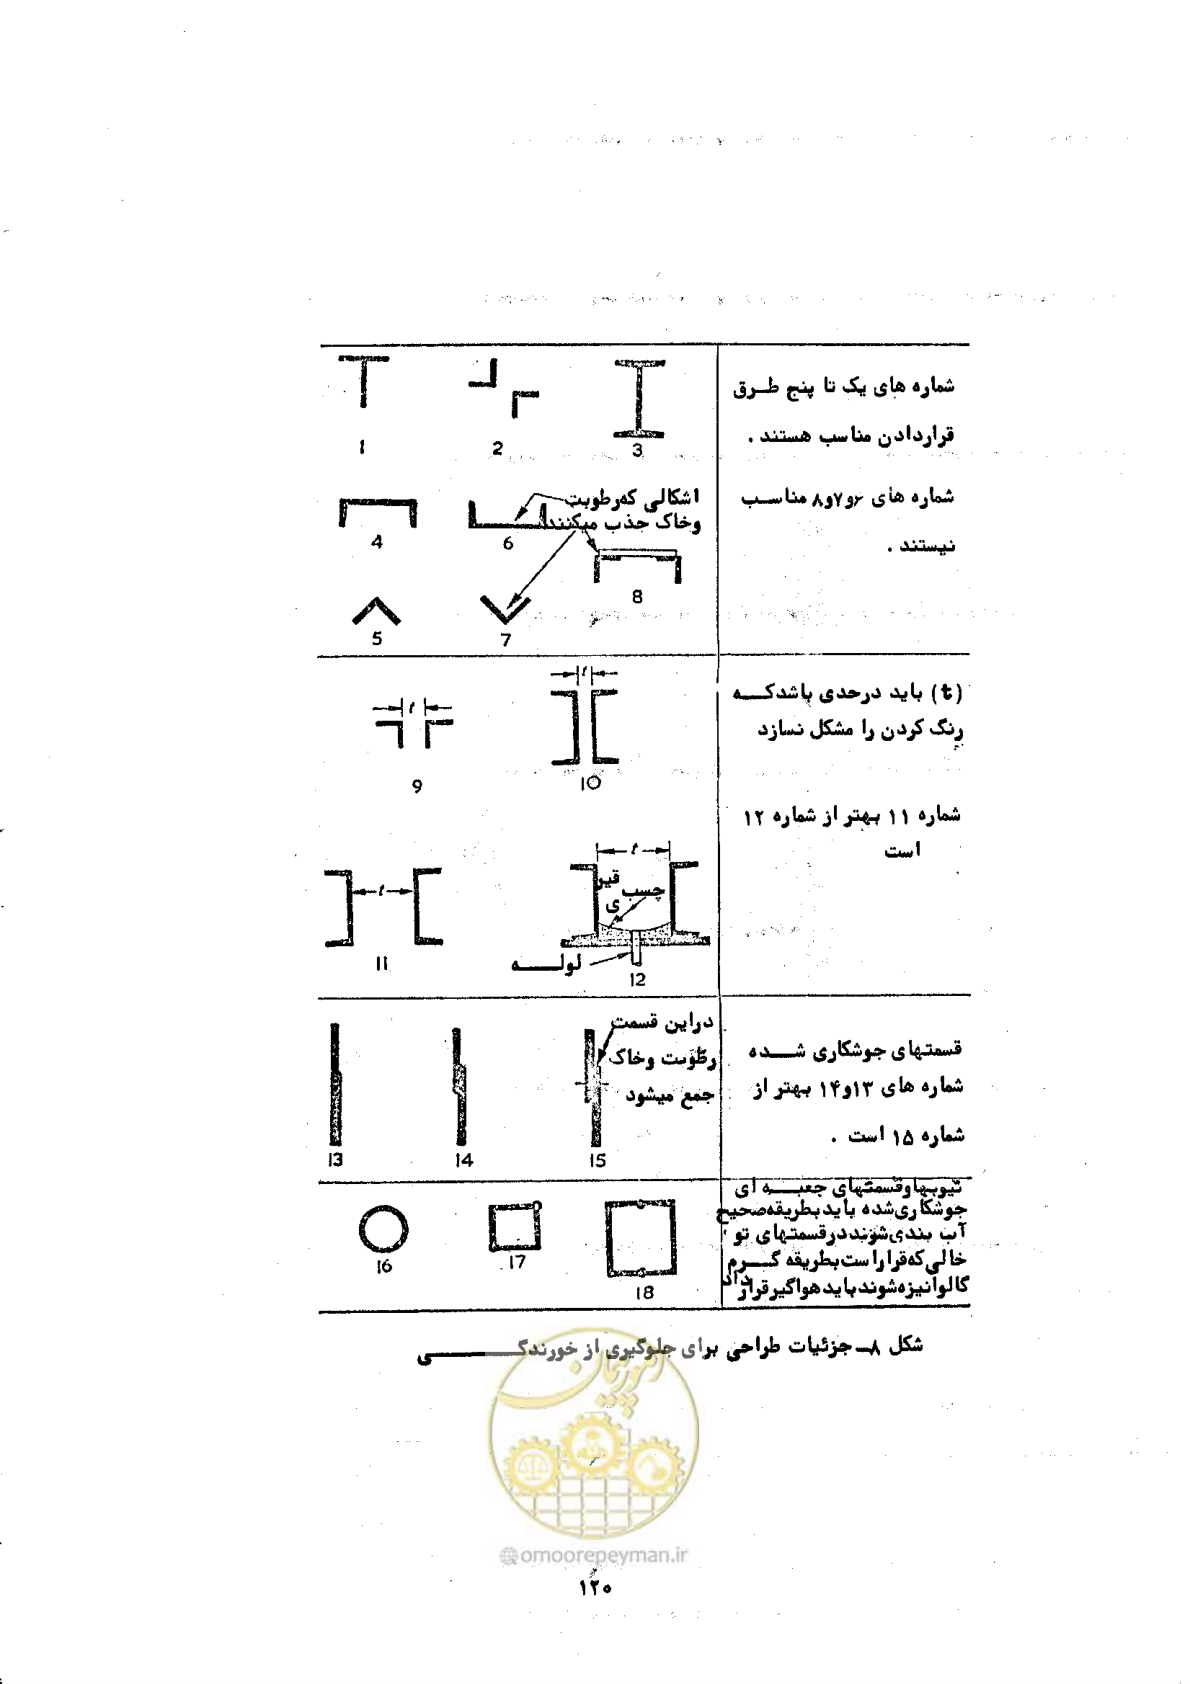 شماره های یک تا پنج طرق
قراردادن مناسب هستند .
1
2
3
شماره های ۶و۷و۸ مناسب
نیستند .
اشکالی که رطوبت
وخاک جذب میکنند
4
6
8
5
7
(t) باید درحدی باشد که
رنگ کردن را مشکل نسازد
t
t
9
10
شماره ۱۱ بهتر از شماره ۱۲
است
t
t
قیر
چسب
ی
لوله
11
12
قسمتهای جوشکاری شده
شماره های ۱۳و۱۴ بهتر از
شماره ۱۵ است .
دراین قسمت
رطوبت وخاک
جمع میشود
13
14
15
تیوبهاوقسمتهای جعبه ای
جوشکاری شده باید بطریقه صحیح
آب بندی شوند درقسمتهای تو
خالی که قراراست بطریقه گرم
گالوانیزه شوند باید هواگیر قرار داد
16
17
18
شکل ۸ـ جزئیات طراحی برای جلوگیری از خورندگی
امور پیمان
@omoorepeyman.ir
۱۲۰